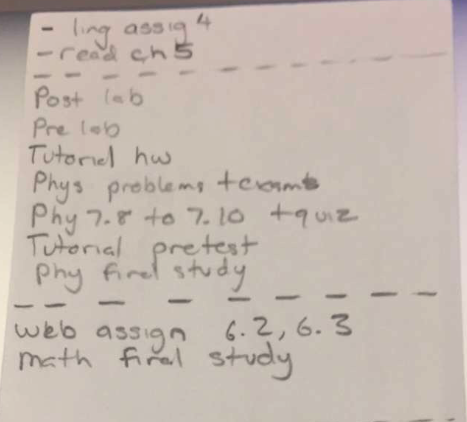 - ling assig 4
- read ch 5
Post lab
Pre lab
Tutorial hw
Phys problems +
Phy 7.8 to 7.10 + quiz
Tutorial pretest
Phy final study
web assign 6.2, 6.3
math final study